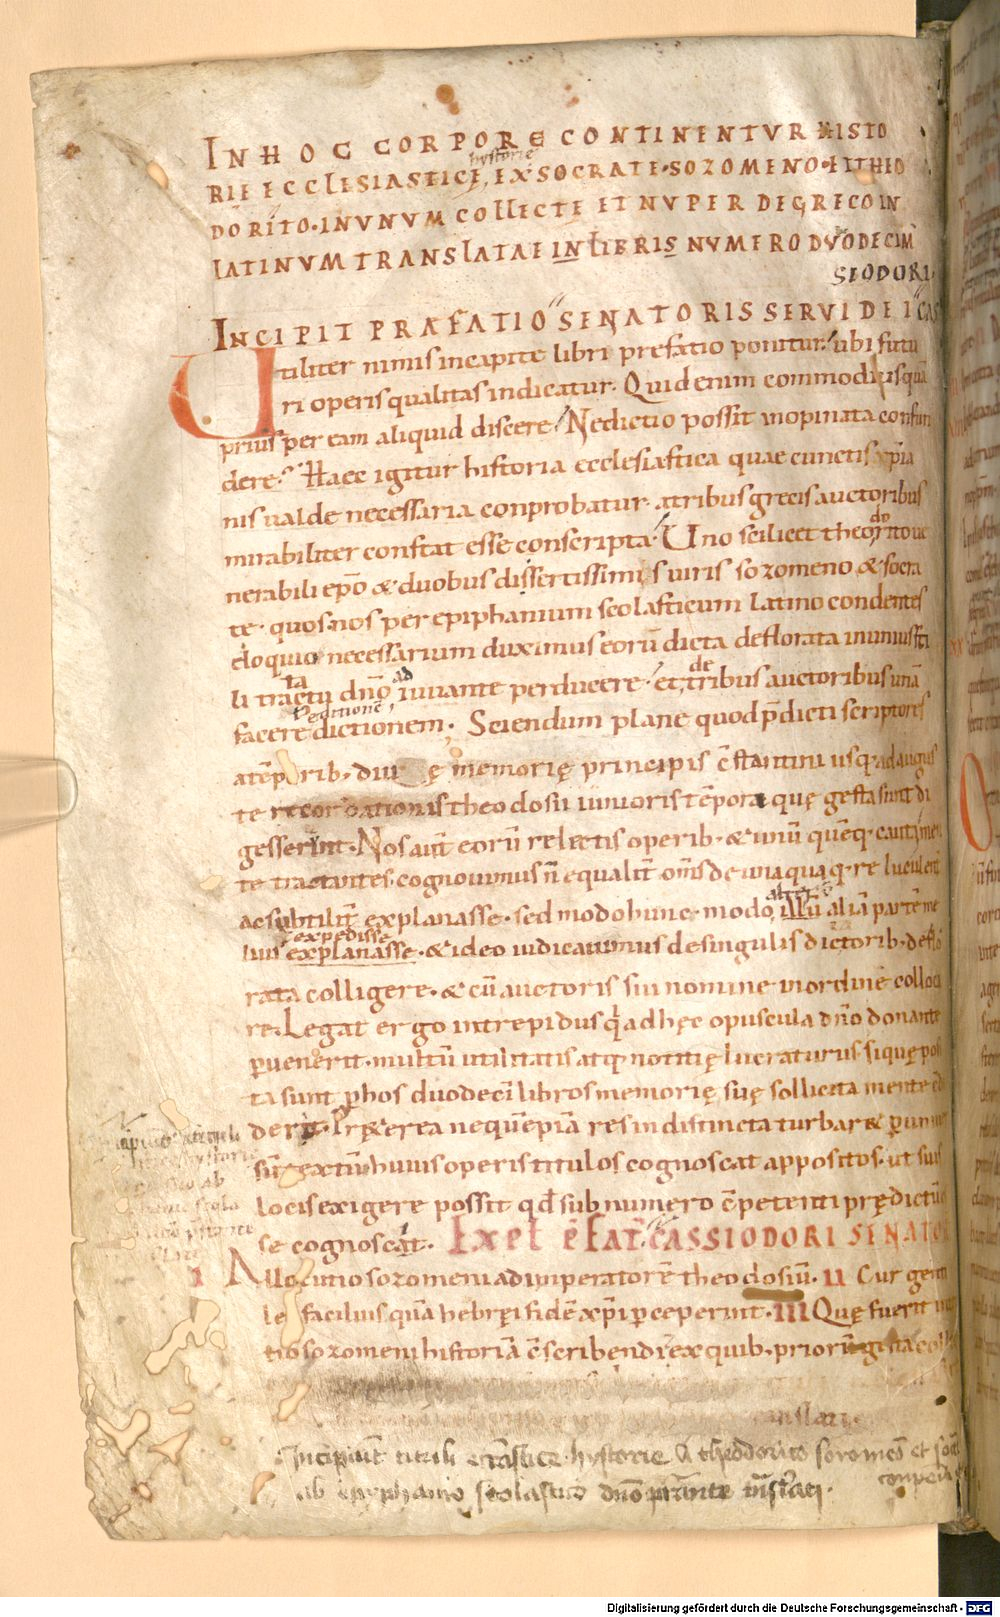 IN HOC CORPORE CONTINENTVR HISTO
hystorię
RIE ECCLESIASTICĘ, EX SOCRATE · SOZOMENO · ET THEO
DORITO · IN VNVM COLLECTE ET NVPER DE GRECO IN
LATINVM TRANSLATAE IN LIBRIS NVMERO DVODECIM
SIODORI
INCIPIT PRAEFATIO SENATORIS SERVI DEI CAS
Utiliter nimis in capite libri prefatio ponitur. ubi futu
ri operis qualitas indicatur. Quid enim commodius quā
prius per eam aliquid discere. Ne dictio possit inopinata confun
dere. Haec igitur historia ecclesiastica quae cunctis xp̄ia
nis ualde necessaria conprobatur. a tribus grecis auctoribus
mirabiliter constat esse conscripta. Uno scilicet theodorito ue
nerabili ep̄o & duobus dissertissimis uiris sozomeno & socra
te. quos nos per epiphanium scolasticum latino condentes
eloquio necessarium duximus eorū dicta deflorata in unius sti
li tractu dn̄o iuuante perducere. et de tribus auctoribus unā
facere dictionem. Sciendum plane quod p̄dicti scriptores
a tēporib· diuę memorię principis c̄stantini usq· ad augus
te recordationis theodosii iunioris tēpora quę gesta sunt di
gesserint. Nos aut̄ eorū relectis operib· & unū quēq· cauta men
te tractantes cognouimus n̄ equalit̄ om̄s de unaquaq· re luculent̄
ac subtilit̄ explanasse. sed modo hunc. modo illū aliā partē me
expedisse
lius explanasse. & ideo iudicauimus de singulis dictorib· deflo
rata colligere. & cū auctoris sui nomine in ordinē colloca
re. Legat ergo intrepidus q ad hęc opuscula dn̄o donante
puenerit. multū utilitatis atq· notitię lucraturus. si quę posi
ta sunt p hos duodecī libros memorię suę sollicita mente
derit. Pręterea nequē piā res indistincta turbar&
sūt textū huius operis titulos cognoscat appositos. ut suis
locis exigere possit qđ sub numero c̄petenti prędictū
se cognoscat. CASSIODORI SENATO
I Allocutio sozomeni ad imperatorē theodosiū. II Cur genti
les facilius quā hebręi fidē xp̄i pceperint. III Quę fuerit
tio sozomeni historiā c̄scribendi & ex quib· priorū gesta coll
Incipiunt tituli hystorie a theodorito sozomeno et
ab epyphanio scolastico dn̄o
Digitalisierung gefördert durch die Deutsche Forschungsgemeinschaft - DFG